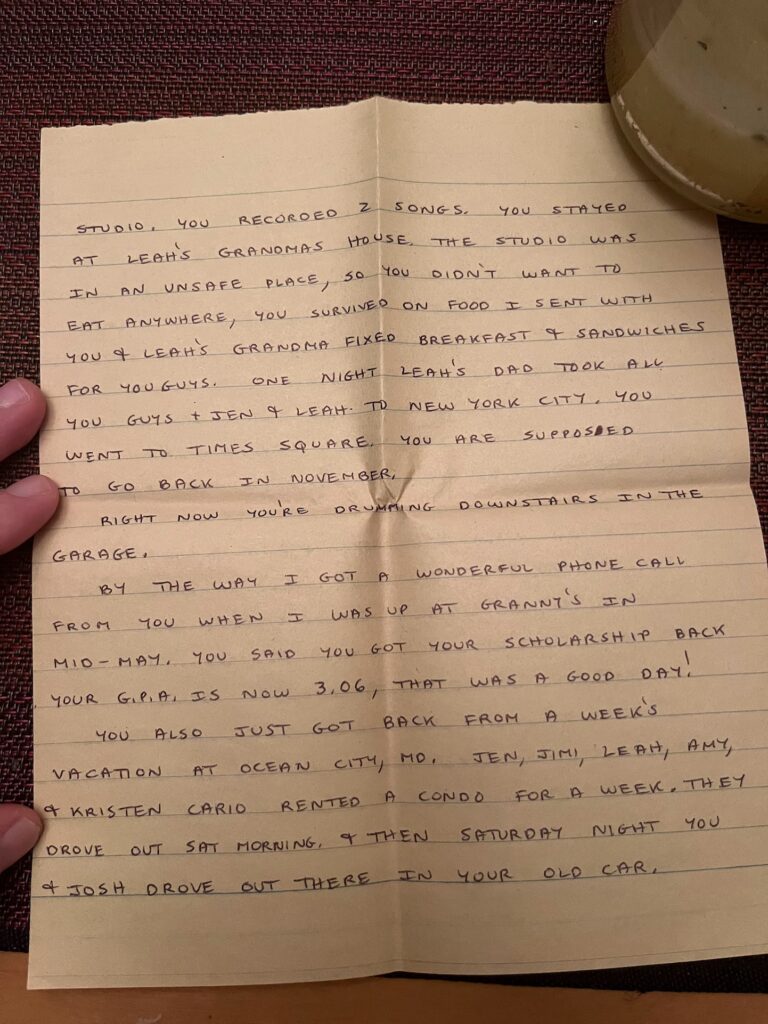 STUDIO. YOU RECORDED 2 SONGS. YOU STAYED
AT LEAH'S GRANDMAS HOUSE. THE STUDIO WAS
IN AN UNSAFE PLACE, SO YOU DIDN'T WANT TO
EAT ANYWHERE, YOU SURVIVED ON FOOD I SENT WITH
YOU & LEAH'S GRANDMA FIXED BREAKFAST & SANDWICHES
FOR YOU GUYS. ONE NIGHT LEAH'S DAD TOOK ALL
YOU GUYS + JEN & LEAH. TO NEW YORK CITY. YOU
WENT TO TIMES SQUARE. YOU ARE SUPPOSED
TO GO BACK IN NOVEMBER.
RIGHT NOW YOU'RE DRUMMING DOWNSTAIRS IN THE
GARAGE.
BY THE WAY I GOT A WONDERFUL PHONE CALL
FROM YOU WHEN I WAS UP AT GRANNY'S IN
MID-MAY. YOU SAID YOU GOT YOUR SCHOLARSHIP BACK
YOUR G.P.A. IS NOW 3.06, THAT WAS A GOOD DAY!
YOU ALSO JUST GOT BACK FROM A WEEK'S
VACATION AT OCEAN CITY, MD. JEN, JIMI, LEAH, AMY,
& KRISTEN CARIO RENTED A CONDO FOR A WEEK. THEY
DROVE OUT SAT MORNING. & THEN SATURDAY NIGHT YOU
& JOSH DROVE OUT THERE IN YOUR OLD CAR.